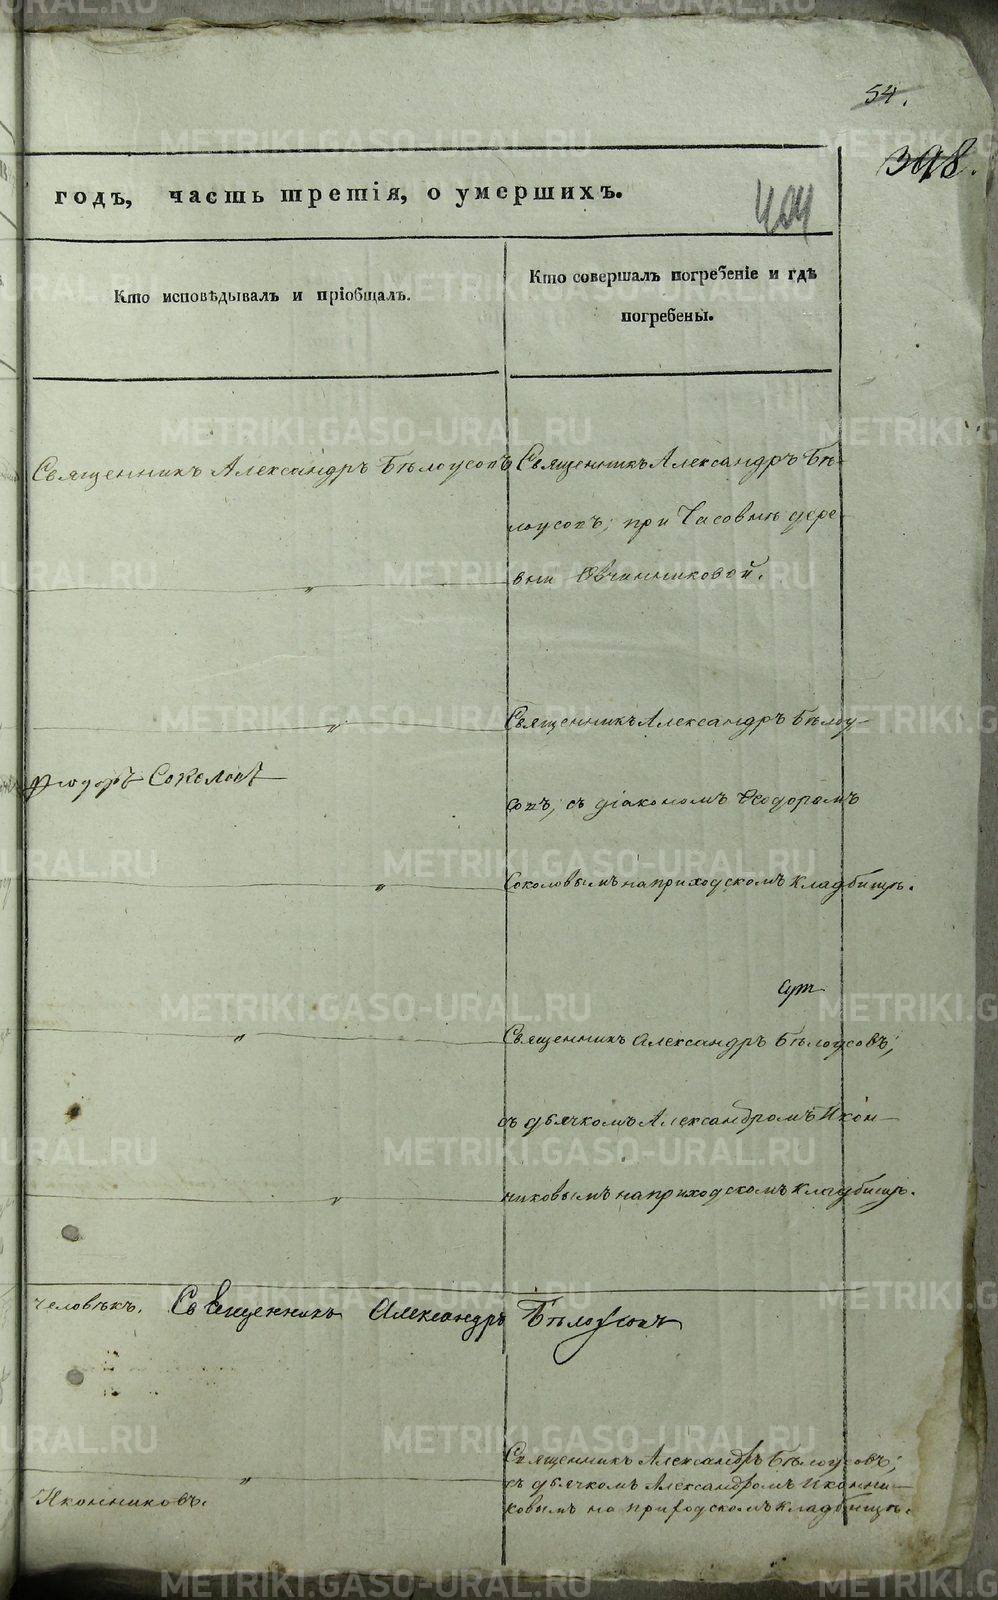 54.
398.
годъ, часть третія, о умершихъ.
Кто исповѣдывалъ и пріобщалъ.
Кто совершалъ погребеніе и гдѣ
погребены.
Священникъ Александръ Бѣлоусовъ
Священникъ Александръ Бѣ-
лоусовъ; при Часовнѣ дере-
вни Овчинниковой.
Священникъ Александръ Бѣлоу-
Ѳеодоръ Соколовъ
совъ, съ діакономъ Ѳеодоромъ
Соколовымъ на приходскомъ кладбищѣ.
Священникъ Александръ Бѣлоусовъ;
съ дьячкомъ Александромъ Икон-
никовымъ на приходскомъ кладбищѣ.
человѣкъ. Священникъ Александръ Бѣлоусовъ
Священникъ Александръ Бѣлоусовъ;
съ дьячкомъ Александромъ Иконни-
Иконниковъ.
ковымъ на приходскомъ кладбищѣ.
METRIKI.GASO-URAL.RU